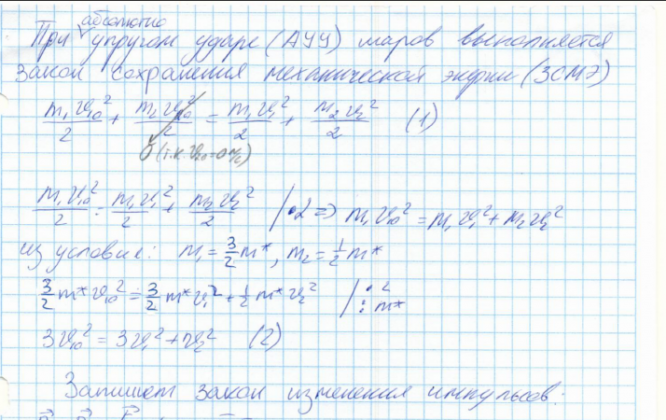 абсолютно
При упругом ударе (АУУ) шаров выполняется
закон сохранения механической энергии (ЗСМЭ)
m₁v₁₀²/2 + m₂v₂₀²/2 = m₁v₁²/2 + m₂v₂²/2 (1)
0 (т.к. v₂₀=0 м/с)
m₁v₁₀²/2 = m₁v₁²/2 + m₂v₂²/2 |·2 => m₁v₁₀² = m₁v₁² + m₂v₂²
из условия: m₁ = 3/2 m*, m₂ = 1/2 m*
3/2 m* v₁₀² = 3/2 m* v₁² + 1/2 m* v₂² | ·2 : m*
3v₁₀² = 3v₁² + v₂² (2)
Запишем закон изменения импульсов: